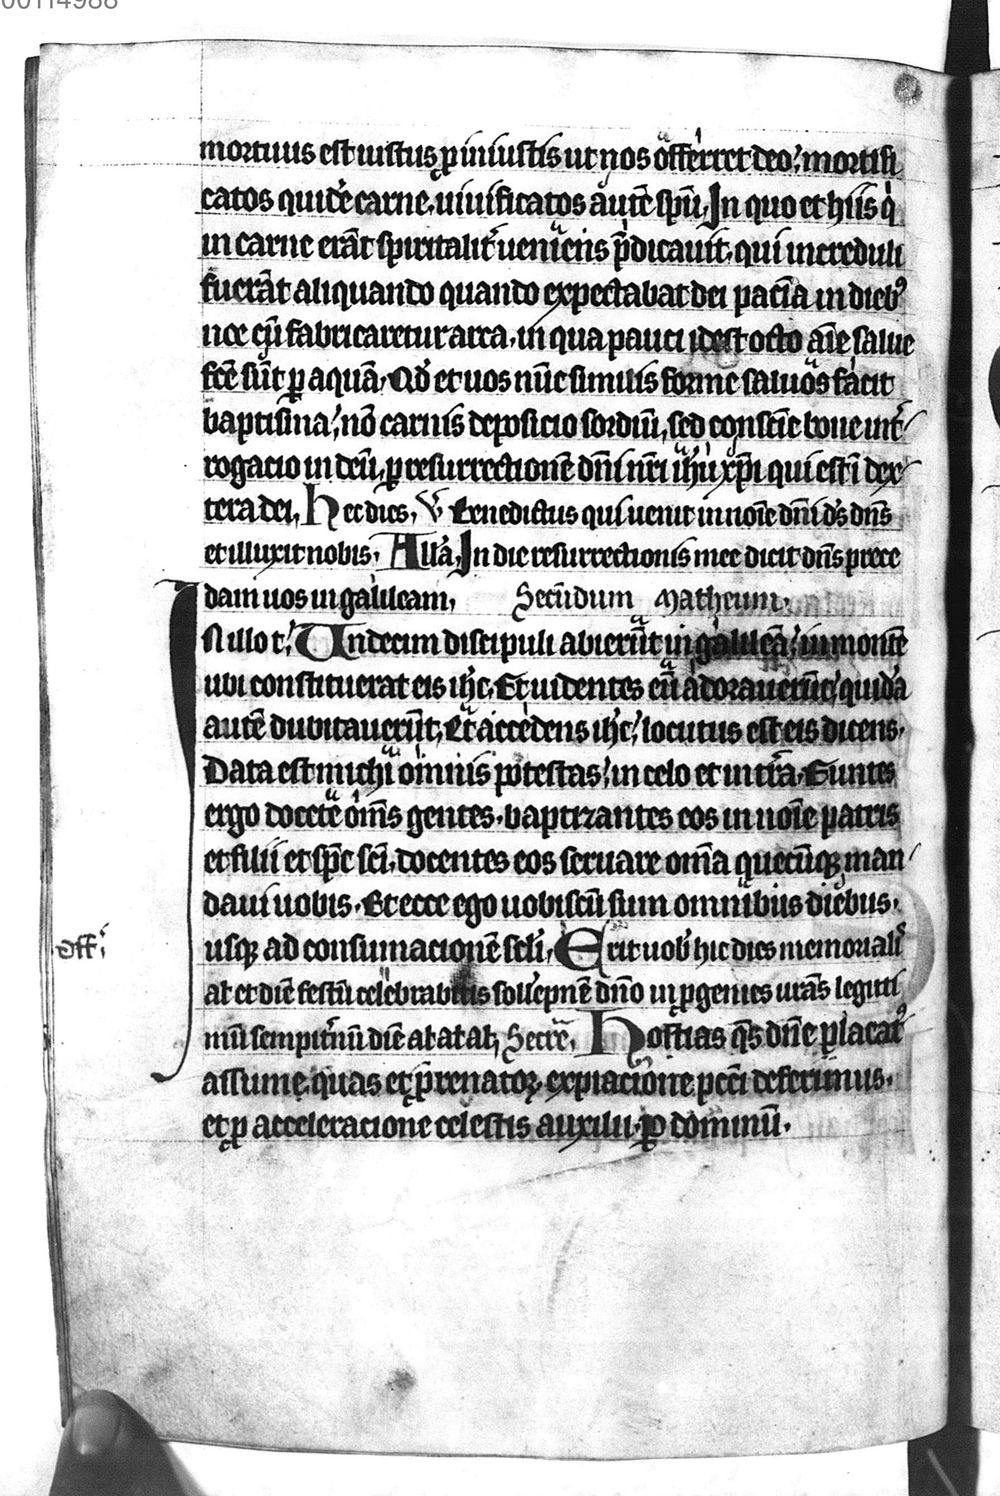 00114988
mortuus est iustus ꝓ iniustis ut nos offerret deo. mortifi
catos quidē carne, uiuificatos autē spū, In quo et hiis q̄
in carne erāt spiritalit̄ ueniens p̄dicauit, qui increduli
fuerāt aliquando quando expectabat dei paciā in dieb⁹
noe cū fabricaretur arca, in qua pauci idest octo aīe salue
fc̄e sūt ꝑ aquā. Qd̓ et uos nūc similis forme saluos facit
baptisma, nō carnis deposicio sordiū, sed consciē bone int̄
rogacio in deū, ꝑ resurrectionē dn̄i nr̄i ih̄u xp̄i qui est ī dex
tera dei, Hec dies, V̓ Benedictus qui uenit in noīe dn̄i ds̄ dn̄s
et illuxit nobis. All̓a. In die resurrectionis mee dicit dn̄s prece
dam uos in galileam, Secūdum Matheum.
In illo t̓. Undecim discipuli abierūt in galileā, in montē
ubi constituerat eis ih̄c. Et uidentes eū adorauerūt, quidā
autē dubitauerūt. Et accedens ih̄c, locutus est eis dicens.
Data est michi omnis potestas, in celo et in tr̄a. Euntes
ergo docete om̄s gentes, baptizantes eos in noīe patris
et filii et sp̄c sc̄i, docentes eos seruare om̄a quecūqꝫ man
daui uobis. Et ecce ego uobiscū sum omnibus diebus,
off̓
usqꝫ ad consumacionē scl̄i, Erit uob̓ hic dies memorialī
al̄ et diē festū celebrabitis sollēpnē dn̄o in ꝓgenies ur̄as legiti
mū sempit̄nū diē al̄ al̄ al̄, Secrē, Hostias qs̄ dn̄e placat⁹
assume, quas et p̄ renatoꝝ expiacione pcc̄i deferimus,
et ꝓ acceleracione celestis auxilii. Ꝑ dominū.